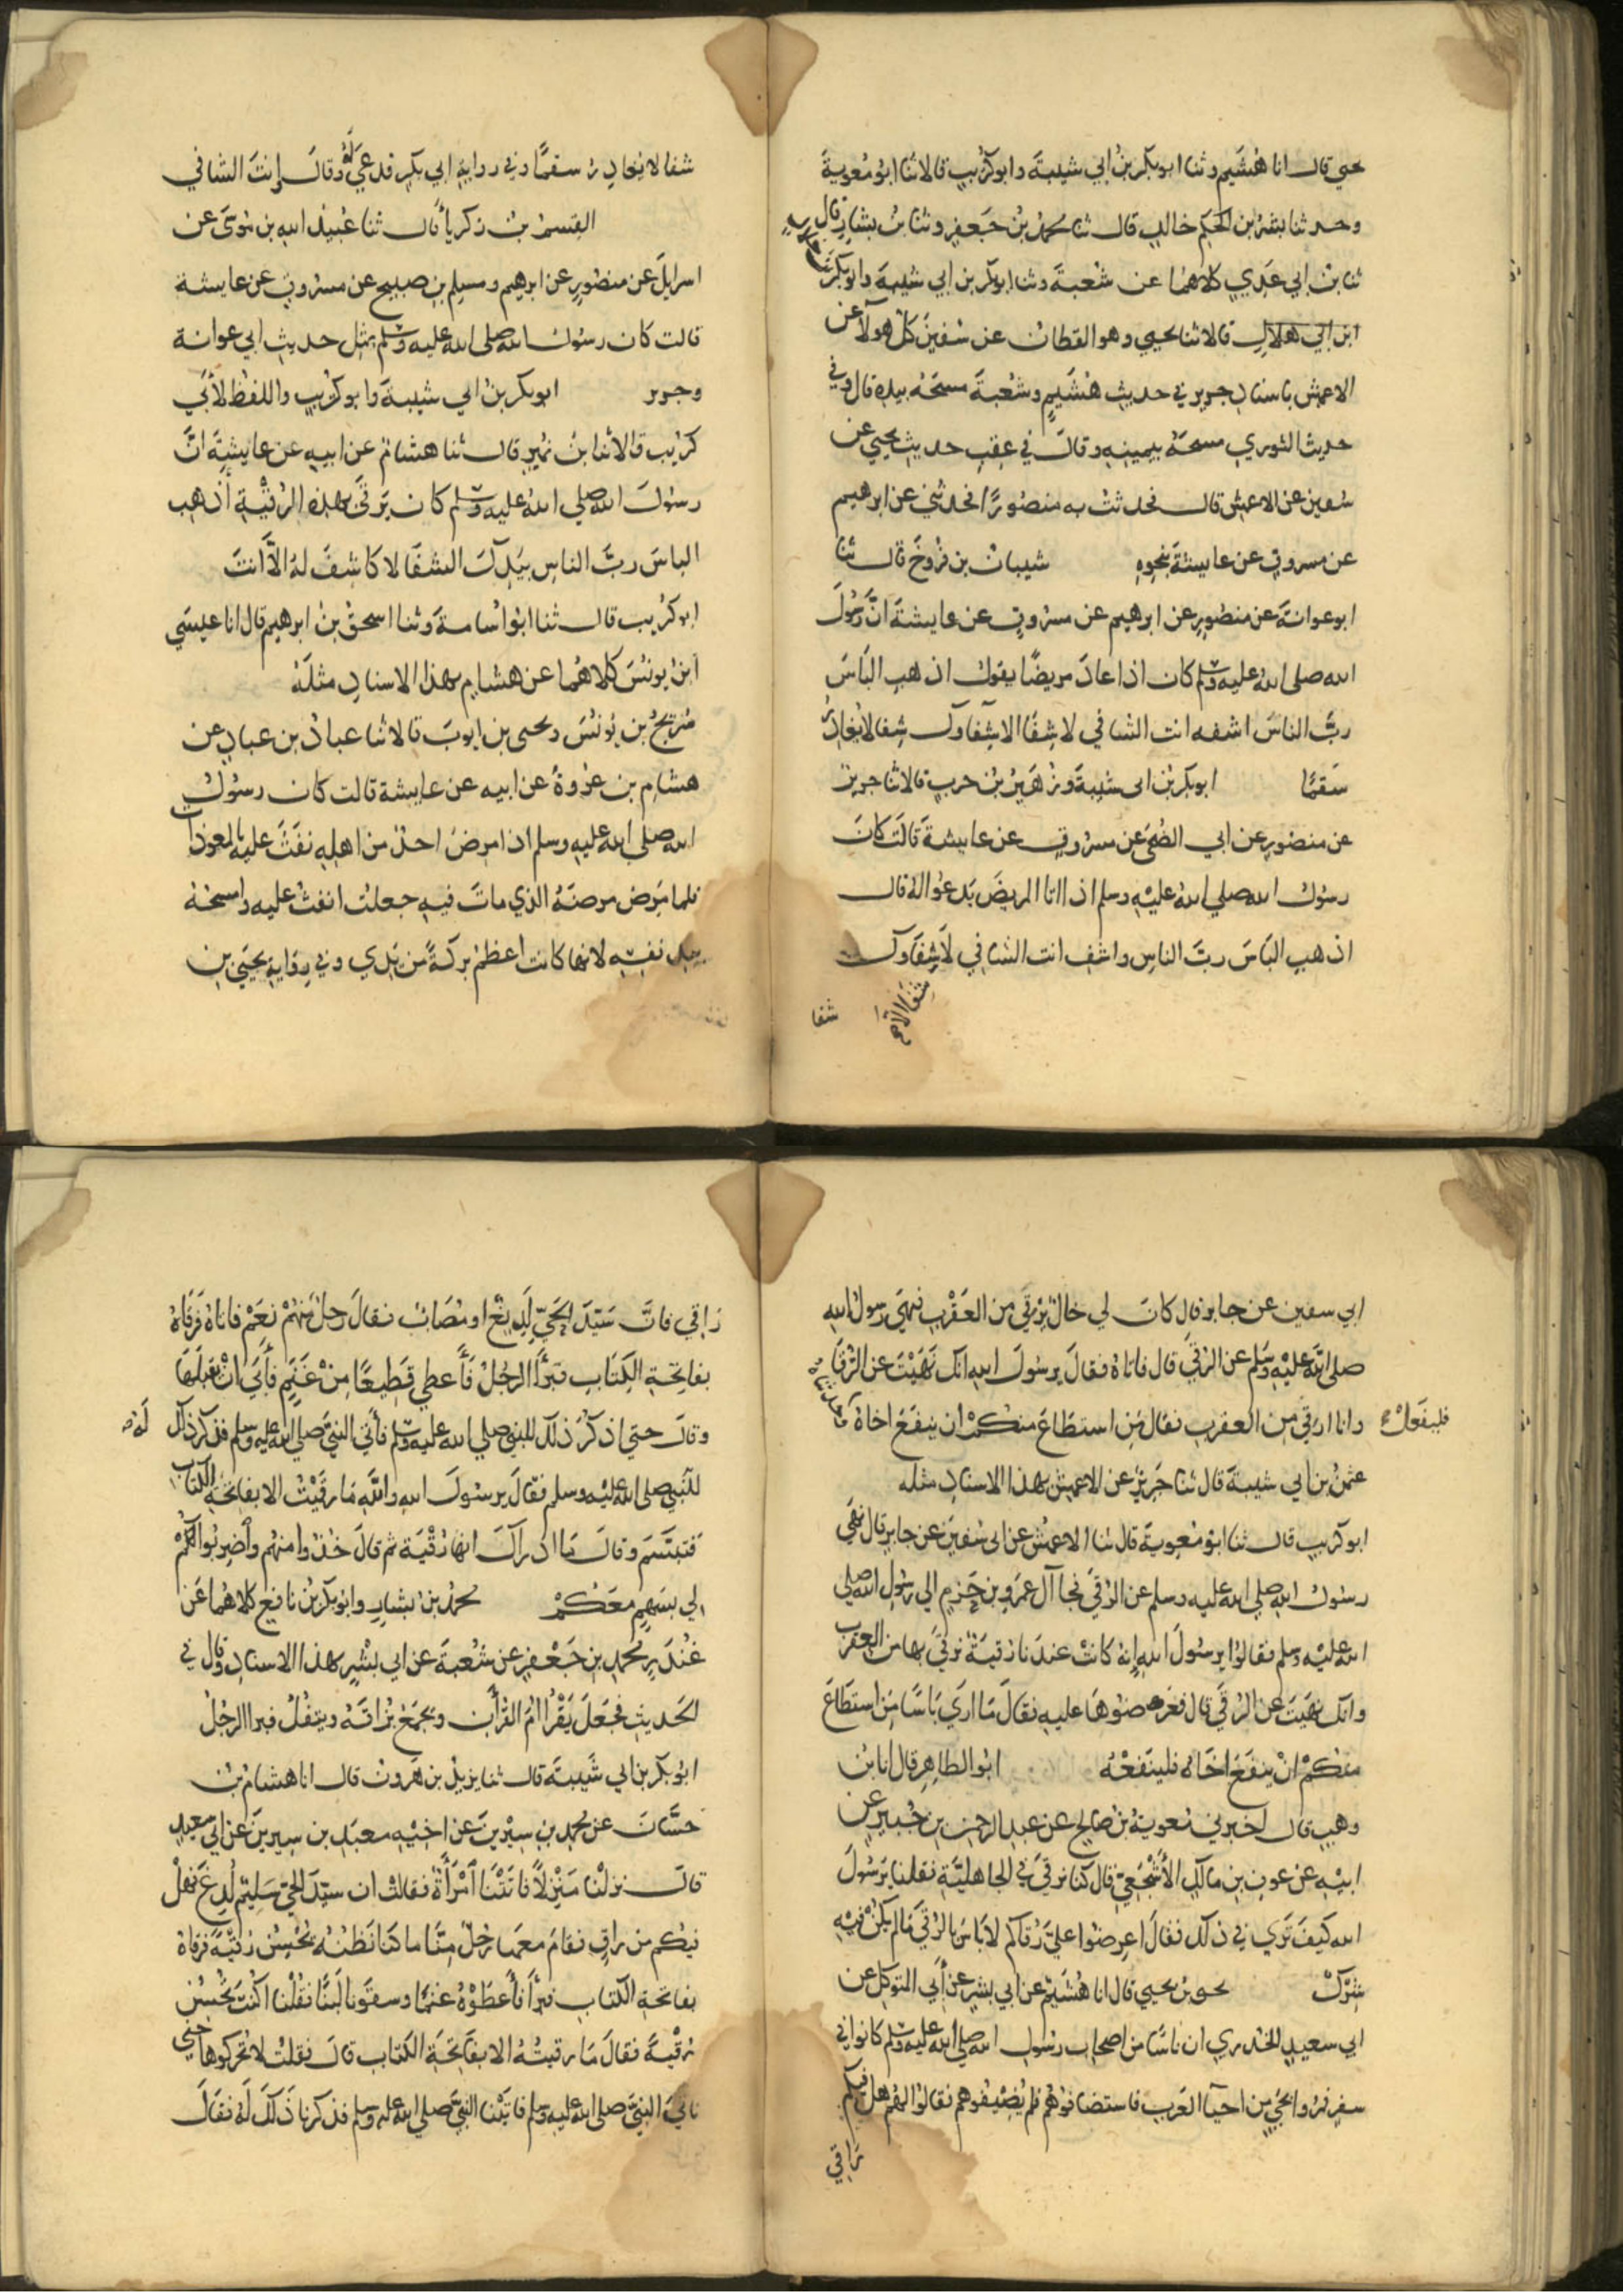 يحيى قال انا هُشَيم وثنا ابوبكر بنُ ابي شيبةَ وابوكُرَيب قالا ثنا ابو مُعويةَ
وحدثنا بشرُ بن الحَكَم خالد قال ثنا محمدُ بنُ جَعفرٍ وثنا بنُ بشارٍ قال
ثنا بنُ ابي عَدِيٍ كلاهما عن شعبةَ وثنا ابوبكر بن ابي شيبةَ وابوبكر
ابن ابي هلالٍ قالا ثنا يحيي وهو القطان عن سُفينَ كل هولآ عن
الاعمش باسنادِ جرير في حديث هُشَيمٍ وشعبةَ مسحَهُ بيده قال وفي
حديث الثوري مسحَهُ بيمينه وقالَ في عقِبِ حديث يحيي عن
سُفين عن الاعمش قال فحدثتُ به منصورًا فحدثني عن ابرهيم
عن مسروقٍ عن عايشةَ بنحوِهِ شيبان بن فَرُّوخَ قال ثنا
ابوعوانةَ عن منصورٍ عن ابرهيم عن مسروقٍ عن عايشةَ انَّ رسُولَ
الله صلى الله عليه وسلم كان اذا عادَ مريضًا يقول اذهبِ البَاسَ
ربَّ الناسَ اشفه انت الشافي لا شِفَا الا شِفاوكَ شِفا لا يُغادِرُ
سَقمًا ابوبكر بن ابى شيبةَ وزُهَيرُ بنُ حربٍ قالا ثنا جريرٌ
عن منصورٍ عن ابي الضُحَى عن مسروقٍ عن عايشةَ قالَت كانَ
رسُولُ الله صلي اللهُ عليْهِ وسلم اذا اتا المريضَ يَدعُوا لهُ قال
اذهبِ البَاسَ ربَّ الناسِ واشفِ انت الشافي لَا شِفَا وكَ
شِفَا الا
شفا
شفا لا يغادِرُ سقمًا وفي روايةِ ابي بكرٍ فدعى لَهُ وقالَ وانتَ الشافي
القسمُ بنُ زكرياَ قال ثنا عُبيدُ اللهِ بن مُوسَى عن
اسرايلَ عن منصورٍ عن ابرهيم ومسلم بن صبيح عن مسروقٍ عن عايشة
قالت كان رسُولُ الله صلى الله عليه وسلم بمثلِ حديثِ ابي عوانة
وجرير ابوبكر بنُ ابي شيبةَ وابو كرُيبٍ واللفظُ لأبي
كرَيب قالا ثنا ابنُ نُمَيرٍ قال ثنا هشامٌ عن ابيهِ عن عايشةَ انَّ
رسُولَ الله صلي اللهُ عليه وسلم كان يَرقَى بهذه الرُقْيَةِ أذهِب
الباسَ ربَّ الناسِ بيَدِكَ الشفَا لا كَاشِفَ لهُ الَّا انتَ
ابوكرُيب قال ثنا ابوُ اُسامةَ وثنا اسحقُ بنُ ابرهيم قال انا عيسَي
ابنُ يونُسَ كلاهُما عن هشامٍ بهذا الاسنادِ مثلَهُ
سُرَيجُ بن يُونُسَ ويحيى بن ايوبَ قالا ثنا عبادُ بن عبادٍ عن
هشامِ بن عُروةَ عن ابيه عن عايشة قالت كان رسُولُ
الله صلى الله عليهِ وسلم اذا مرِضَ احدٌ من اهلِهِ نفَثَ عليهِ بالمعوذات
فلما مَرِض مرضَهُ الذي ماتَ فيهِ جعلت انفثُ عليه وامسحُهُ
بيدِ نفسِهِ لانها كانت اعظمَ بركةً من يَدي وفي رِوَايةِ يحيَى بن
ابي سفين عن جابر قالَ كانَ لي خالٌ يَرْقِي من العَقْربِ فنهَى رسولُ الله
صلى اللهُ عليْهِ وسَلم عن الرُقَي قال فاتاهُ فقالَ يرسُولَ الله انكَ نَهَيْتَ عن الرُقَا
وانا ارقِي مِن العقربِ فقالَ مَنِ استطَاعَ منكمْ ان ينفَعَ اخاهُ
فليفعَلْ
عثمنُ بن ابي شيبةَ قال ثنا جَرِيرٌ عن الاعمش بهذا الاسنادِ مثله
ابو كريب قال ثنا ابوُ مُعويةَ قال ثنا الاعمشُ عن ابى سُفينَ عن جابرٍ قال نهَي
رسولُ اللهِ صلي الله عليه وسلم عن الرُقَي فجا آلُ عمرِو بن حَزمٍ الي رسُولِ الله صلي
الله عليْه وسلم فقالُوا يرسُولَ الله انهُ كانَتْ عندَنا رُقيةٌ نَرقِي بها من العقرب
وانكَ نَهَيتَ عن الرُقَي قال فعَرَضوُهَا عليهِ فقالَ مَا اريَ بَاسًا مَنِ استَطَاعَ
منكمْ انْ ينفَعَ اخَاهُ فلينفَعْهُ ابوُ الطاهرِ قال انا بنُ
وهبٍ قال اخبرني مُعويةُ بنُ صالحٍ عن عبدِ الرحمن بن جُبيرٍ عن
ابيْهِ عن عوفِ بنِ مالكٍ الأَشْجَعِيِّ قال كنا نَرقِيَ في الجاهليَّةِ فقلنا يرَسُولَ
الله كيفَ تَرَي في ذلكَ فقالَ اعرضُوا عليَّ رُقاكم لا بَاسَ بالرُقَي مَا لم يكنْ فيْهِ
شِرْكٌ يحيى بن يحيي قال انا هُشَيْمٌ عن ابي بشرٍ عن أَبي المتوكلِ عن
ابي سعيدٍ الخدري ان ناسًا من اصحابِ رسُولِ الله صلي الله عليه وسلم كانوا في
سفرٍ فمرُوا بحَيٍ مِن احيآ العَرَبِ فاستضافوُهُمْ فلم يُضَيِّفوهم فقالُوا لهُم هل فيكم
رَاقِي
رَاقِي فانَّ سَيِّدَ الحَيِّ لَدِيغٌ او مُصَابٌ فقالَ رجلٌ منهُمْ نَعَمْ فاتاهُ فَرَقَاهُ
بفاتحةِ الكِتَابِ فبَرَأَ الرجُلُ فَأُعطِي قَطِيعًا مِنْ غَنَمٍ فأَبَي انْ يَقْبلَهَا
وقالَ حتى اذكُرَ ذلكَ للنبي صلي الله عليه وسلم فأتَي النبيَّ صلى الله عليه وسلم فذكرَ ذلكَ لَهُ
للنبي صلى الله عليْه وسلم فقالَ يرسُولَ الله واللَّهِ مَا رقَيْتُ الا بفاتحةِ الكتاب
فتبسَّمَ وقالَ مَا ادراكَ انهَا رُقْيَة ثم قالَ خُذُوا منهُم واضرِبُوا
لي بسَهمٍ معَكُمْ محمدُ بن بشارٍ وابوُ بكرِ بنُ نافعٍ كلاهُما عَن
غُندَرٍ محمدِ بن جَعْفرٍ عن شُعْبةَ عن ابي بشْرٍ بهذا الاسنادِ وقال في
الحَديثِ فجَعَلَ يَقْرَأُ امَ القُرأَنِ ويجمَعُ بُزاقَهُ ويتفُلُ فبرا الرجُلُ
ابوُ بكر بن ابي شَيبةَ قال ثنا يزيدُ بن هَرونَ قال انا هشامُ بنُ
حسَّانَ عن محمدِ بنِ سِيْرينَ عن اخيْهِ معبَدِ بن سِيرينَ عن ابي سَعِيدٍ
قالَ نزلْنا مَنْزِلاً فاتَتْنَا امْرَأَةٌ فقالت ان سيِّدَ الحَيِّ سَلِيمٌ لُدِغَ فهَلْ
فيكم من راقٍ فقامَ معَهَا رَجُلٌ مِنَّا ما كنَا نَظُنُّهُ يُحْسِنُ رُقْيَةً فرَقَاهُ
بفاتحةِ الكتابِ فبرَأَ فأَعطَوْهُ غنَمًا وسقَوْنا لَبنًا فقُلْنا اكُنتَ تُحْسِنُ
رُقْيةً فقالَ مَا رقيتُهُ الا بفَاتحَةِ الكتاب قالَ فقلتُ لا تُحَرِكوُها حَتي
ناتيَ النبيَّ صلى الله عليه وسلم فاتَيْنا النبيَّ صلي الله عليه وسلم فذكرنا ذلكَ لَهُ فقَالَ